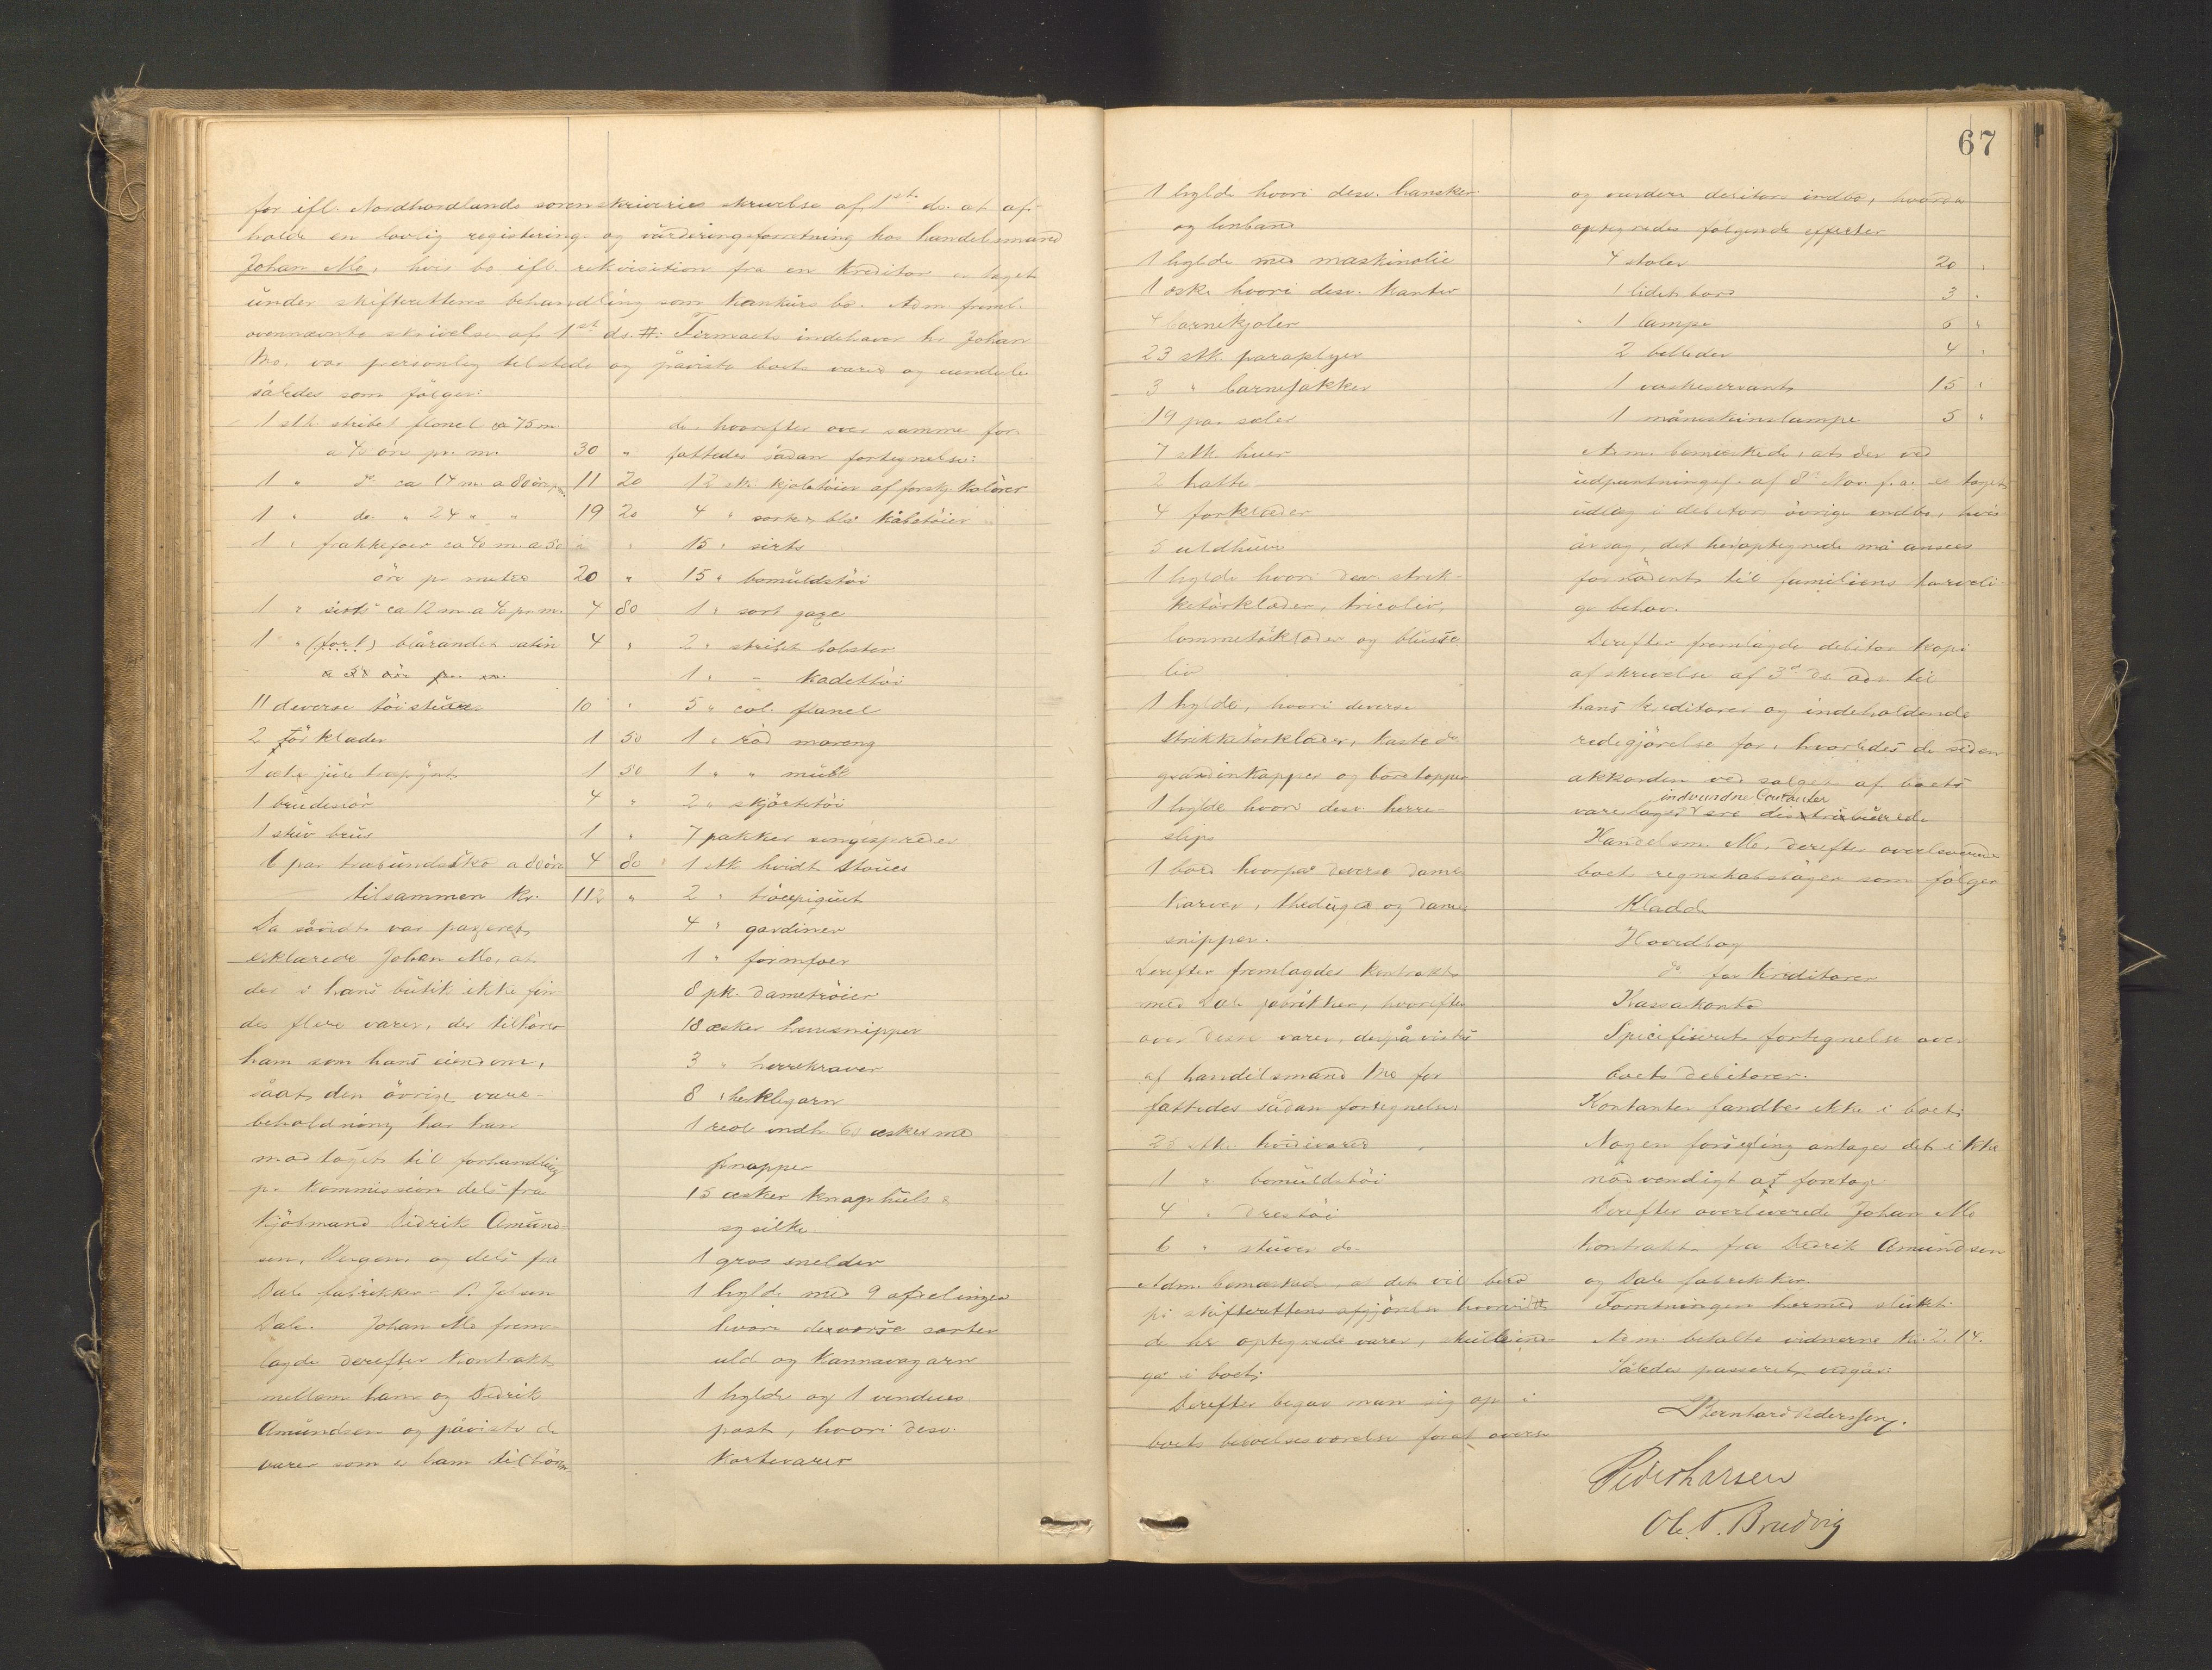 for ifl. Nordhordlands sorenskriveries skrivelse af 1st ds. at af-
holde en lovlig registerings og vürderingsforretning hos handelsmand
Johan Mo, hvis bo ifl. rekvisition fra en kreditor er taget
ünder skifterettens behandling som konkürsbo. Adm. freml.
ovennævnte skrivelse af 1st ds. #: Firmaets indehaver hr. Johan
Mo, var personlig tilstede og påviste boets varer og
således som følger:
1 stk stribet flonel ca 75 m.
a 40 öre pr. m. 30 "
1 " do. ca 14 m. a 80 öre 11 20
1 " do. " 24 " " 19 20
1 " frakkefoer ca 40 m. a 50
öre pr metre 20 "
1 " sirts ca 12 m. a 40 pr. m. 4 80
1 " (fort) blårandet satin 4 "
a 50 öre pr. m.
11 diverse töistüver 10 "
2 törklæder 1 50
1 1 50
1 brüdeslör 4 "
1 stüv brüs 1 "
6 par træbündsko a 80 öre 4 80
tilsammen kr. 112 "
Da såvidt var passeret,
erklærede Johan Mo, at
der i hans bütik ikke fin-
des flere varer, der tilhörer
ham som hans eiendom,
såat den övrige vare-
beholdning har han
modtaget til forhandling
pr. kommission dels fra
kjöbmand Didrik Amünd-
sen, Bergen og dels fra
Dale fabrikker - P. Jebsen
Dale. Johan Mo frem-
lagde derefter kontrakt
mellem ham og Didrik
Amündsen og påviste de
varer som er ham tilhören-
de, hvorefter over samme for-
fattedes sådan fortegnelse:
12 stk. kjoletöier af forskj. kolörer
4 " sorte & blå kåbetöier
15 " sirts
15 " bomüldstöi
1 " sort gaze
2 " stribet bolster
1 " - kadettöi
5 " col. flanel
1 " röd moreng
1 " "
2 " skjörtetöi
7 pakker sengespreder
1 stk hvidt stoües
2 "
4 " gardiner
1 "
8 pk. dametröier
18 æsker herresnipper
3 " herrekraver
8 " heklegarn
1 reol indh. 60 æsker med
knapper
15 æsker knaphüls &
sysilke
1 gros snelder
1 hylde med 9 afdelinger
hvori diverse sorter
uld og kannavagarn
1 hylde og 1 vindües
post, hvori desv.
kortevarer
67
1 hylde hvori desv. hansker
og linbånd
1 hylde med maskinolie
1 æske hvori desv. kanter
4 barnekjoler
23 stk. paraplyer
3 " barnejakker
19 par seler
7 stk huer
2 hatte
4 forklæder
5 uldhüer
1 hylde hvori desv. strik-
ketörklæder, tricoliv,
lommetörklæder og blüse-
liv
1 hylde, hvori deverse
strikketörklæder, kaste do
gardinkapper og
1 hylde hvori desv. herre-
slips
1 bord hvorpå deverse dame
kraver, thedüge og dame
snipper.
Derefter fremlagdes kontrakt
med Dale fabrikker, hvorefter
over disse varer, der påvistes
af handelsmand Mo for
fattedes sådan fortegnelse:
20 stk. hvidevarer
1 " bomüldstöi
4 " drestöi
6 " stüver do.
Adm. bemærkede, at det vil bero
på skifterettens afgjörelse hvorvidt
de her optegnede varer, skülle ind-
gå i boet.
Derefter begav man sig op i
boets beboelsesværelse forat overse
og vurdere debitors indbo, hvorda
optegnedes følgende effecter
4 stoler 20 "
1 lidet bord 3 "
1 lampe 6 "
2 billeder 4 "
1 vaskeservant 15 "
1 måneskinslampe 5 "
Adm. bemærkede, at der ved
üdpantningsf. af 8de Nov. f.a. er taget
üdlæg i debitors övrige indbo, hvis
årsag, det heroptegnede må ansees
fornödent til familiens tarveli-
ge behov.
Derefter fremlagde debitor kopi
af skrivelse af 3d ds. adr. til
hans kreditorer og indeholdende
redegjörelse for, hvorledes de siden
akkorden ved salget af boets
indvundne Contanter
varelager ere distribüerede
Handelsm. Mo, derefter overleverede
boets regnskabsbøger som følger
Kladde
Hovedbog
do for kreditorer
Kassakonto
Spicifiseret fortegnelse over
boets debitorer.
Kontanter fandtes ikke i boet.
Nogen forsegling antages det ikke
nödvendigt at foretage
Derefter overleverede Johan Mo
kontrakt fra Didrik Amündsen
og Dale fabrikker.
Forretningen hermed slüttet.
Adm. betalte vidnerne kr. 2.14.
Således passeret, vedgår:
Bernhard Pederssen.
Peder Larsen
Ole T. Brudvig